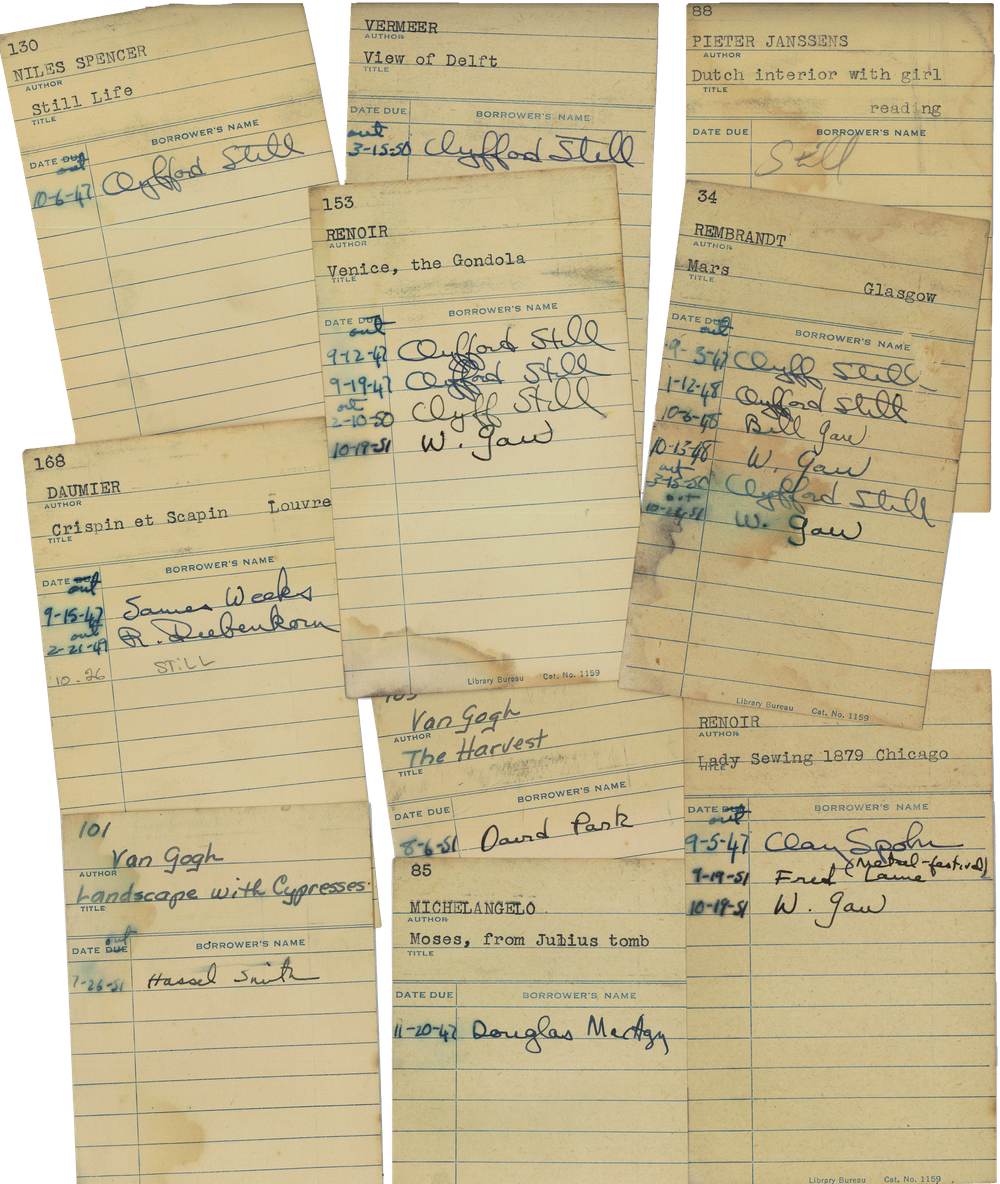 130
NILES SPENCER
AUTHOR
Still Life
TITLE
DATE DUE BORROWER'S NAME
out
10-6-47 Clyfford Still
VERMEER
AUTHOR
View of Delft
TITLE
DATE DUE BORROWER'S NAME
out
3-15-50 Clyfford Still
88
PIETER JANSSENS
AUTHOR
Dutch interior with girl
TITLE
reading
DATE DUE BORROWER'S NAME
Still
153
RENOIR
AUTHOR
Venice, the Gondola
TITLE
DATE DUE BORROWER'S NAME
out
9-12-47 Clyfford Still
9-19-47 Clyfford Still
out
2-10-50 Clyff Still
10-19-51 W. Gaw
Library Bureau Cat. No. 1159
34
REMBRANDT
AUTHOR
Mars
TITLE
Glasgow
DATE DUE BORROWER'S NAME
out
9-3-47 Clyff Still
1-12-48 Clyfford Still
10-6-48 Bill Gaw
10-13-48 W. Gaw
out
3-15-50 Clyfford Still
out
W. Gaw
Library Bureau Cat. No. 1159
168
DAUMIER
AUTHOR
Crispin et Scapin Louvre
TITLE
DATE DUE BORROWER'S NAME
out
9-15-47 James Weeks
out
2-21-49 R. Diebenkorn
10.26 STILL
Van Gogh
AUTHOR
The Harvest
TITLE
DATE DUE BORROWER'S NAME
8-6-51 David Park
RENOIR
AUTHOR
Lady Sewing 1879 Chicago
TITLE
DATE DUE BORROWER'S NAME
out
9-5-47 Clay Spohn
(metal-festival)
9-19-51 Fred Lame
10-19-51 W. Gaw
Library Bureau Cat. No. 1159
101
Van Gogh
AUTHOR
Landscape with Cypresses
TITLE
out
DATE DUE BORROWER'S NAME
7-26-51 Hassel Smith
85
MICHELANGELO
AUTHOR
Moses, from Julius tomb
TITLE
DATE DUE BORROWER'S NAME
11-20-47 Douglas MacAgy